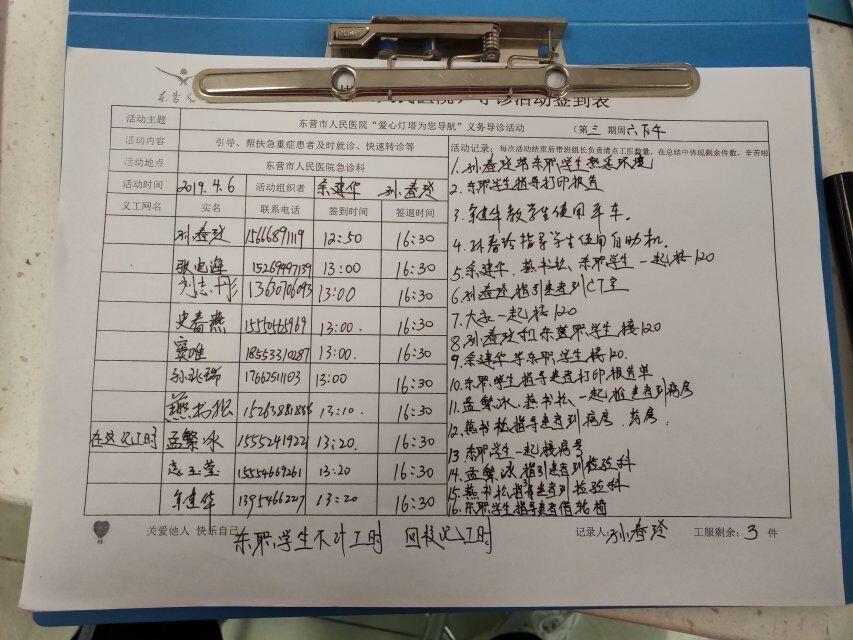 东营义
人民医院）导诊活动签到表
活动主题 东营市人民医院“爱心灯塔为您导航”义务导诊活动 （第三期周六下午
活动内容 引导、帮扶急重症患者及时就诊、快速转诊等 活动记录：每次活动结束后带班组长负责清点工服数量，在总结中体现剩余件数，辛苦啦
活动地点 东营市人民医院急诊科
活动时间 2019.4.6 活动组织者 余建华 孙春玲
义工网名 实名 联系电话 签到时间 签退时间
孙春玲 15666891119 12:50 16:30
张电海 15269997139 13:00 16:30
刘志彤 13630706093 13:00 16:30
史春燕 15550565969 13:00 16:30
窦唯 18553310287 13:00 16:30
孙兆瑞 17662511103 13:00 16:30
燕书松 13:10 16:30
在校记工时 孟繁冰 15552419221 13:20 16:30
15554669261 13:20 16:30
余建华 13:20 16:30
1.孙春玲带东职学生熟悉环境
2.东职学生指导打印报告
3.余建华教学生使用平车.
4.孙春玲指导学生使用自助机.
5.余建华、燕书松、东职学生一起接120
6.孙春玲指引患者到CT室
7.大家一起接120
8.孙春玲和东营职学生接120
9.余建华等东职学生接120.
10.东职学生指导患者打印报告单
11.孟繁冰、燕书松一起推患者到病房
12.燕书松指导患者到病房、药房.
13.东职学生一起接病号
14.孟繁冰指引患者到检验科
15.燕书松指导患者到检验科
16.东职学生指导患者借轮椅
关爱他人 快乐自己 记录人：孙春玲 工服剩余：3 件
东职学生不计工时 回校记工时